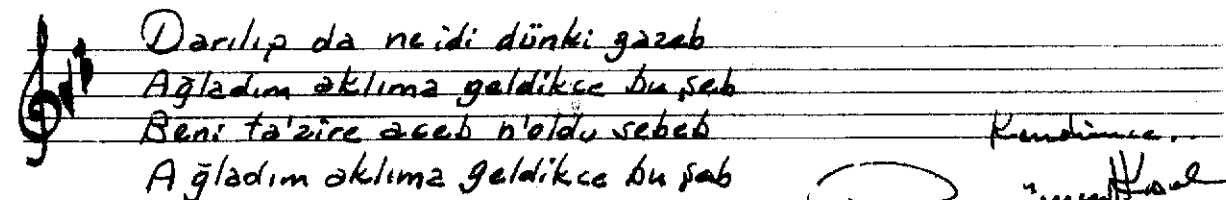 Darılıp da ne idi dünki gazeb
Ağladım aklıma geldikce bu şeb
Beni ta'zire aceb n'oldu sebeb
Kendimce..
Ağladım aklıma geldikce bu şeb